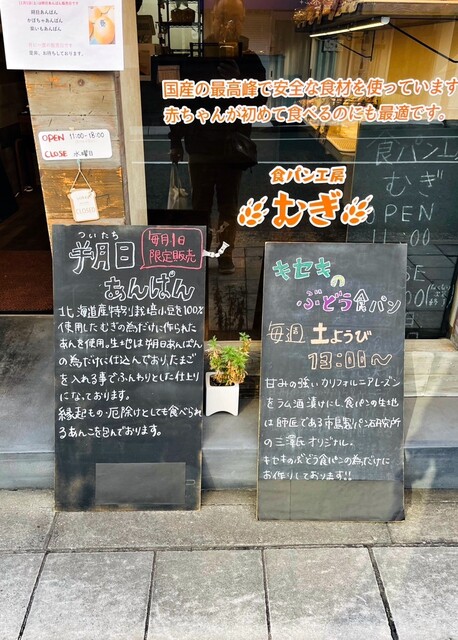 朔日あんぱん
かぼちゃあんぱん
栗いもあんぱん
国産の最高峰で安全な食材を使っています
赤ちゃんが初めて食べるのにも最適です。
OPEN 11:00-18:00
CLOSE 水曜日
食パン工房
むぎ
食パン工
むぎ
OPEN
11:00
ついたち
朔日
毎月1日
限定販売
あんぱん
北海道産特別栽培小豆を100%
使用したむぎの為だけに作られた
あんを使用。生地は朔日あんぱん
の為だけに仕込んでおり、たまご
を入れる事でふんわりとした仕上り
になっております。
縁起もの・厄除けとしても食べられ
るあんこを包んでおります。
キセキの
ぶどう食パン
毎週 土ようび
13:00〜
甘みの強いカリフォルニアレーズン
をラム酒漬けにし食パンの生地
は師匠である市島製パン研究所
の三澤氏オリジナル.
キセキのぶどう食パンの為だけに
お作りしております!!